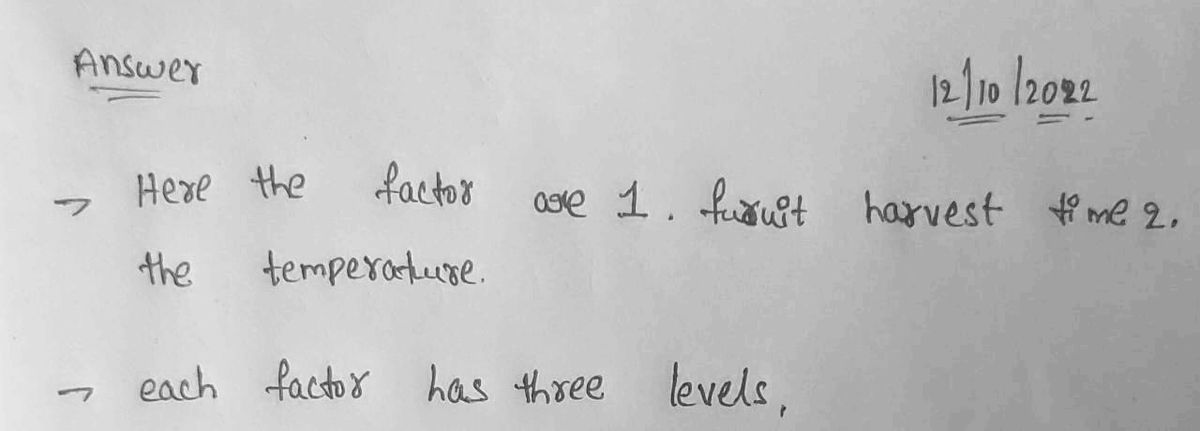 Answer
12/10/2022
→ Here the factor are 1. furuit harvest time 2.
the temperature.
→ each factor has three levels,